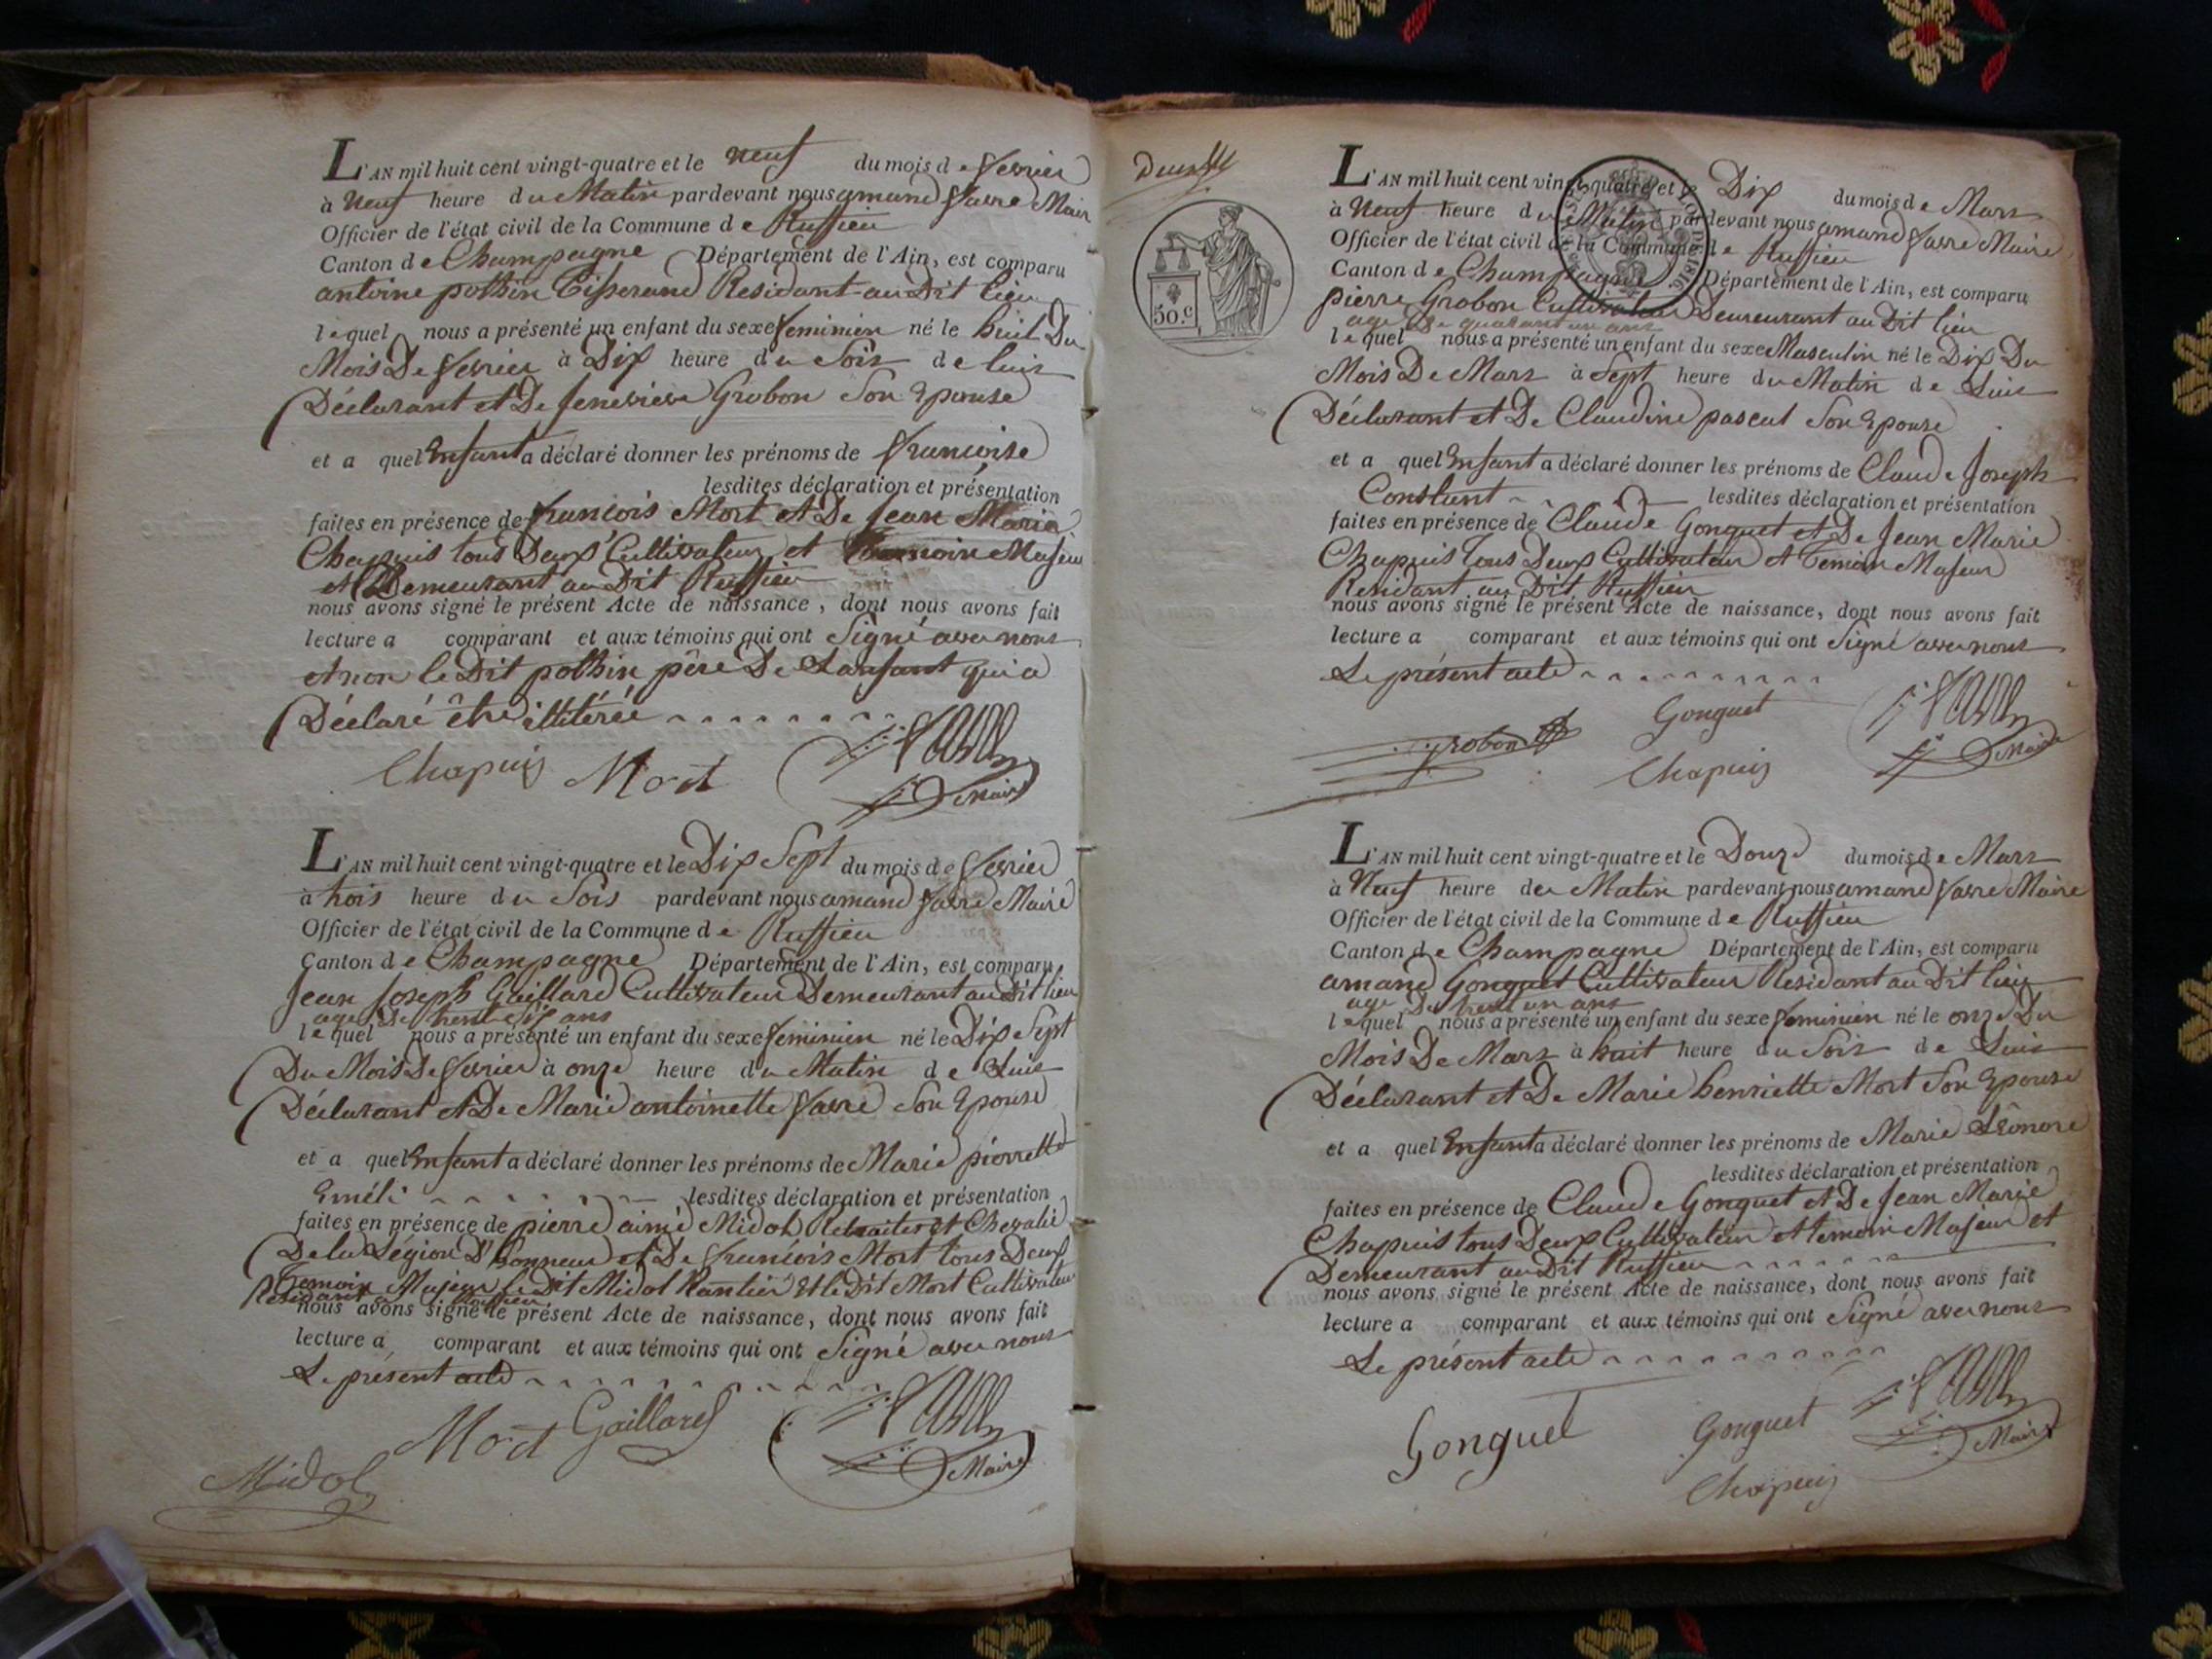 L'AN mil huit cent vingt-quatre et le neuf du mois de fevrier
à Neuf heure du Matin pardevant nous amand favre Maire
Officier de l'état civil de la Commune de Ruffieu
Canton de Champagne Département de l'Ain, est comparu
antoine pothin Tisserand Residant au Dit lieu
lequel nous a présenté un enfant du sexe feminien né le huit Du
Mois De fevrier à Dix heure du Soir de luis
Déclarant et De jenevieve Grobon Son Epouse
et a quel Enfant a déclaré donner les prénoms de francoise
lesdites déclaration et présentation
faites en présence de francois Mort et De jean Marie
Chapuis tous Deux Cultivateur et temoin Majeur
et Demeurant au Dit Ruffieu
nous avons signé le présent Acte de naissance, dont nous avons fait
lecture a comparant et aux témoins qui ont Signé avec nous
et non le Dit pothin père De Lanfant qui a
Déclaré être illitérée
Chapuis Mort favre
Maire
L'AN mil huit cent vingt-quatre et le Dix Sept du mois de fevrier
à trois heure du Soir pardevant nous amand favre Maire
Officier de l'état civil de la Commune de Ruffieu
Canton de Champagne Département de l'Ain, est comparu
Jean Joseph Gaillard Cultivateur Demeurant au Dit lieu
age De trente six ans
lequel nous a présenté un enfant du sexe feminien né le Dix Sept
Du Mois De fevrier à onze heure du Matin de Luis
Déclarant et De Marie antoinette favre Son Epouse
et a quel Enfant a déclaré donner les prénoms de Marie pierrette
Eméli lesdites déclaration et présentation
faites en présence de pierre aimé Midol Retraiter et Chevalié
De la Légion D'honneur et De francois Mort tous Deux
Temoin Majeur le Dit Midol Rantier et le Dit Mort Cultivateur
Residant a Ruffieu
nous avons signé le présent Acte de naissance, dont nous avons fait
lecture a comparant et aux témoins qui ont Signé avec nous
Le présent acte
Mort Gaillard favre
Midol Maire
Deux
50.c
L'AN mil huit cent vingt-quatre et le Dix du mois de Mars
à Neuf heure du Matin pardevant nous amand favre Maire
Officier de l'état civil de la Commune de Ruffieu
Canton de Champagne Département de l'Ain, est comparu
pierre Grobon Cultivateur Demeurant au Dit lieu
age De quarant un ans
lequel nous a présenté un enfant du sexe Masculin né le Dix Du
Mois De Mars à Sept heure du Matin de Luis
Déclarant et De Claudine pascal Son Epouse
et a quel Enfant a déclaré donner les prénoms de Claude Joseph
Constant lesdites déclaration et présentation
faites en présence de Claude Gonguet et De Jean Marie
Chapuis Tous Deux Cultivateur et Temoin Majeur
Residant au Dit Ruffieu
nous avons signé le présent Acte de naissance, dont nous avons fait
lecture a comparant et aux témoins qui ont Signé avec nous
Le présent acte
Gonguet favre
grobon Maire
Chapuis
L'AN mil huit cent vingt-quatre et le Douze du mois de Mars
à Neuf heure du Matin pardevant nous amand favre Maire
Officier de l'état civil de la Commune de Ruffieu
Canton de Champagne Département de l'Ain, est comparu
amand Gonguet Cultivateur Residant au Dit lieu
age De trent un ans
lequel nous a présenté un enfant du sexe feminien né le onze Du
Mois De Mars à huit heure du Soir de Luis
Déclarant et De Marie henriette Mort Son Epouse
et a quel Enfant a déclaré donner les prénoms de Marie Léonore
lesdites déclaration et présentation
faites en présence de Claude Gonguet et De Jean Marie
Chapuis tous Deux Cultivateur et temoin Majeur et
Demeurant au Dit Ruffieu
nous avons signé le présent Acte de naissance, dont nous avons fait
lecture a comparant et aux témoins qui ont Signé avec nous
Le présent acte
Gonguet Gonguet favre
Maire
Chapuis